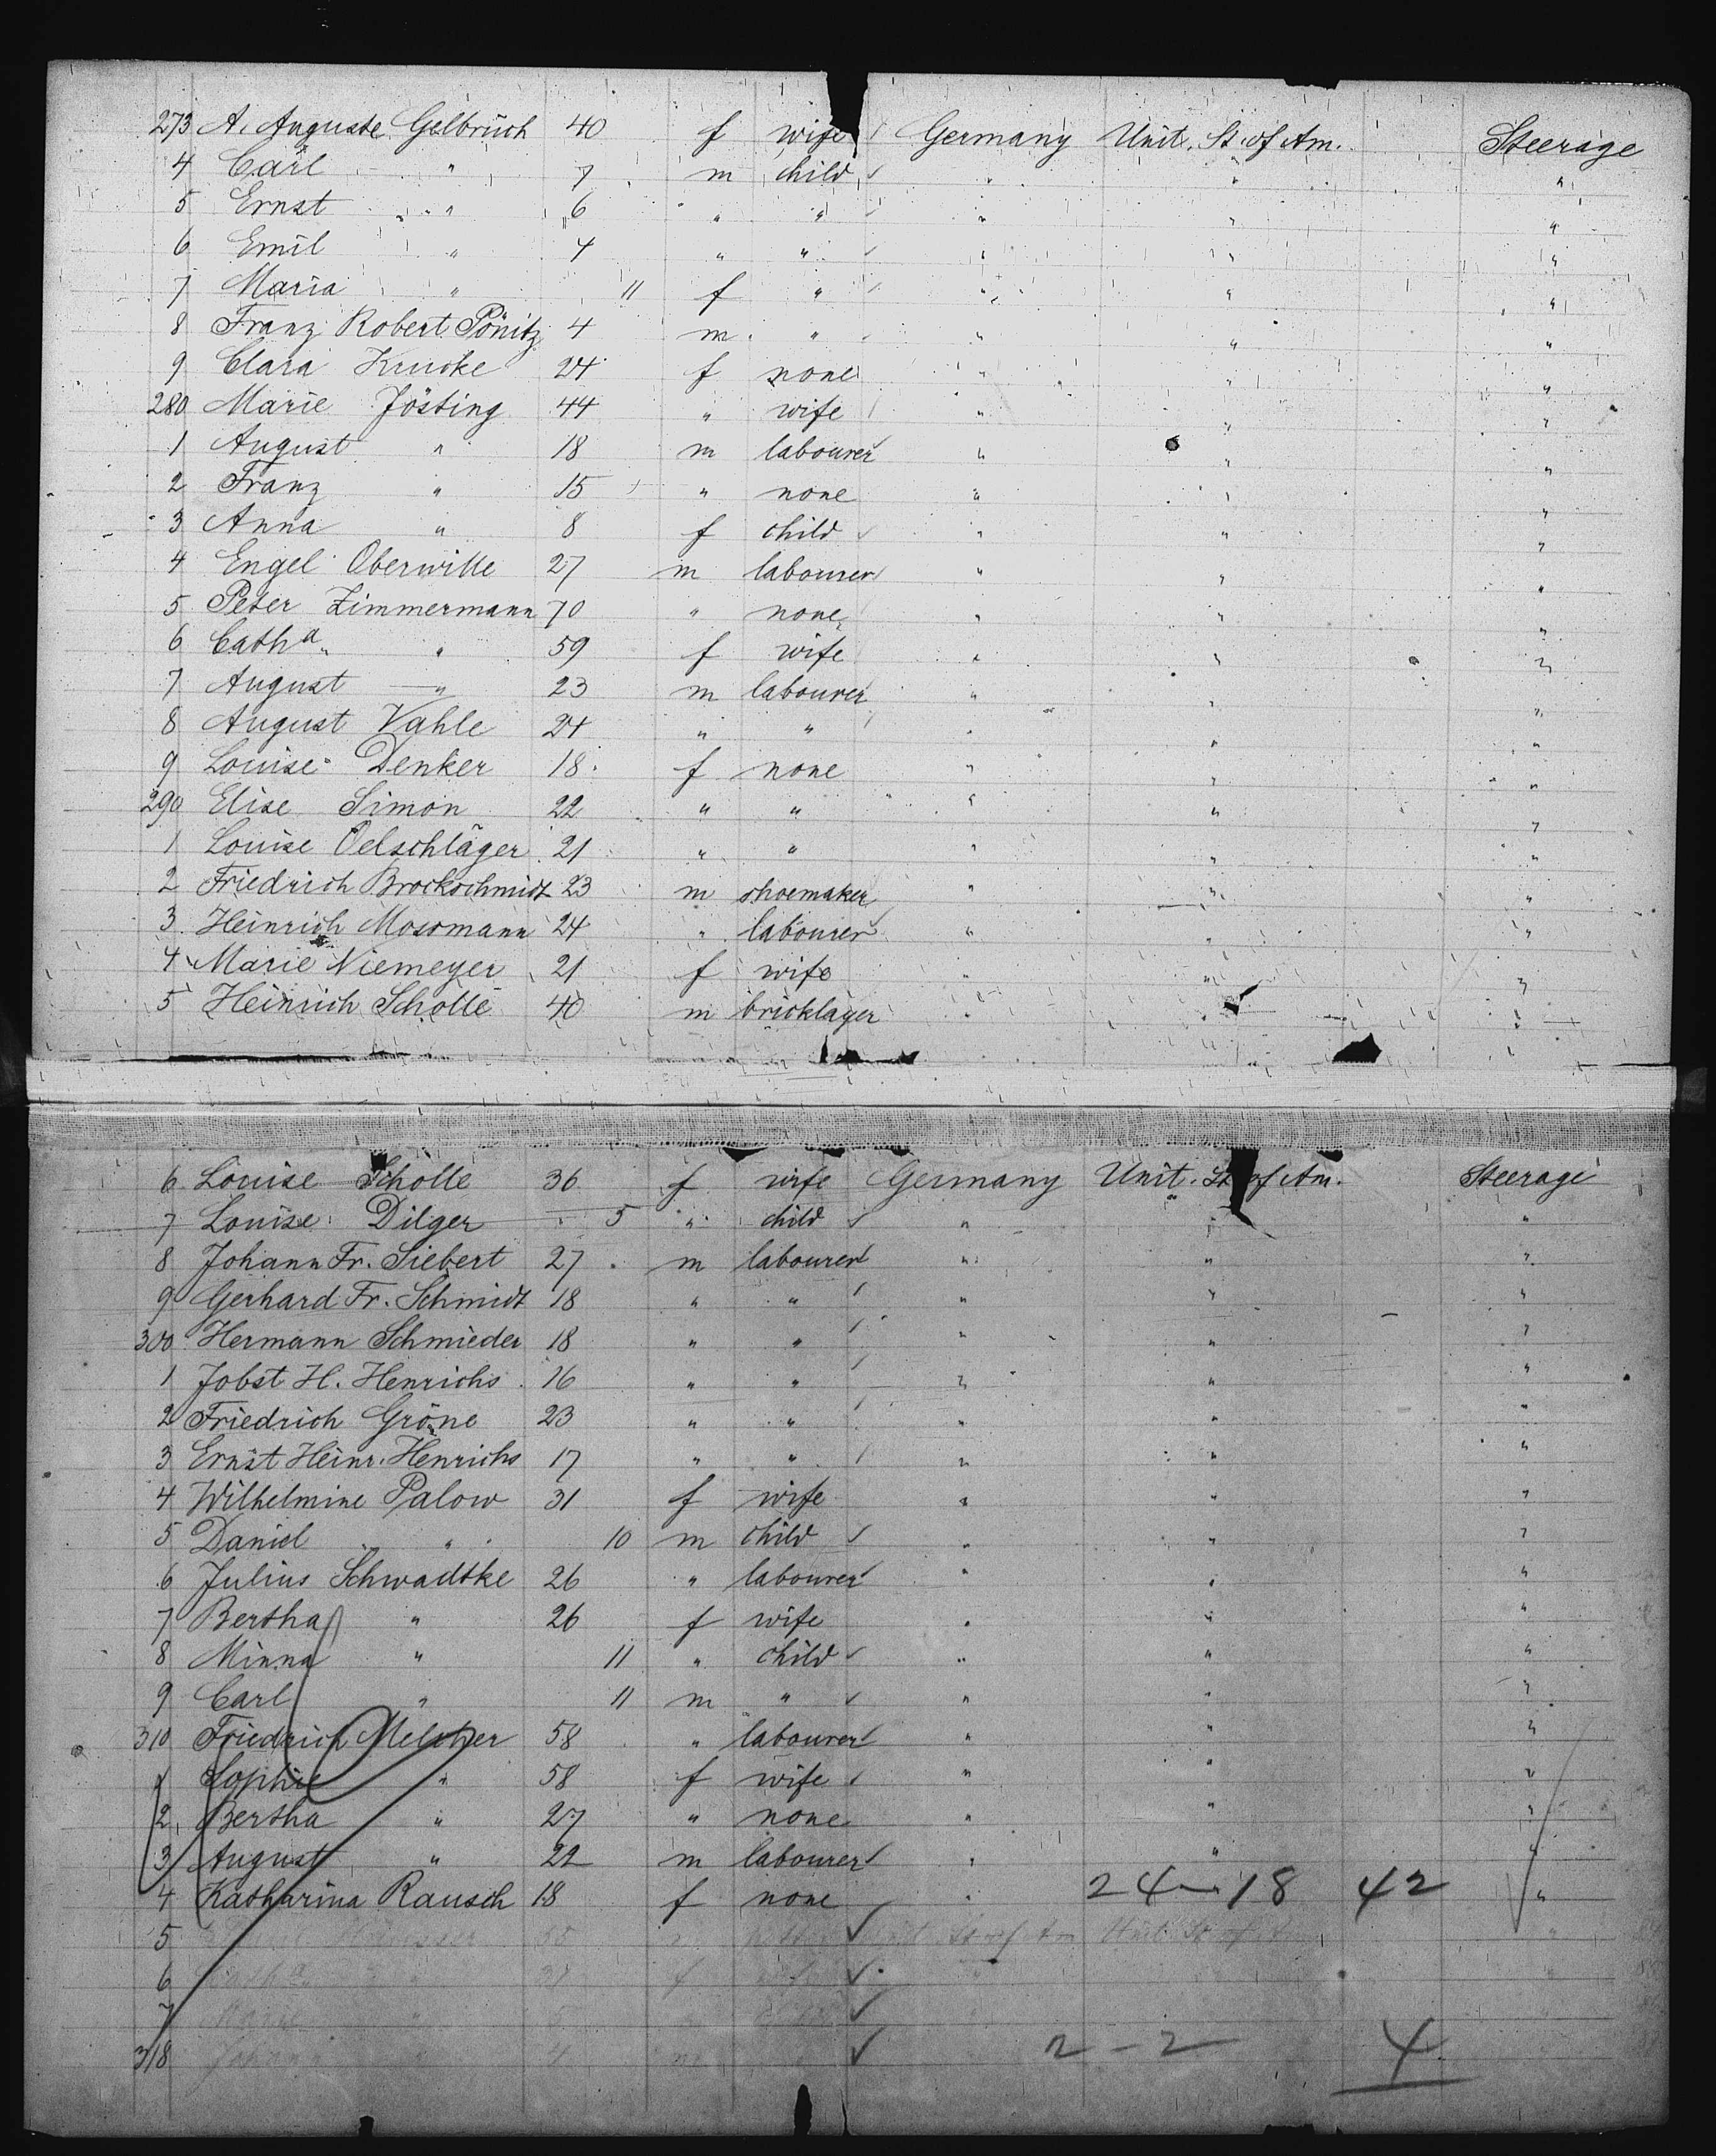 273 A. Auguste Gelbrüch 40 f wife Germany Unit. St. of Am. Steerage
4 Carl " 7 m child " " "
5 Ernst " 6 " " " " "
6 Emil " 4 " " " " "
7 Maria " 11 f " " " "
8 Franz Robert Pönitz 4 m " " " "
9 Clara 24 f none " " "
280 Marie Jösting 44 " wife " " "
1 August " 18 m labourer " " "
2 Franz " 15 " none " " "
3 Anna " 8 f child " " "
4 Engel Oberwitte 27 m labourer " " "
5 Peter Zimmermann 70 " none " " "
6 Catha. " 59 f wife " " "
7 August " 23 m labourer " " "
8 August Vahle 24 " " " " "
9 Louise Denker 18 f none " " "
290 Elise Simon 22 " " " " "
1 Louise Oelschläger 21 " " " " "
2 Friedrich Brockschmidt 23 m shoemaker " " "
3 Heinrich Mosomann 24 " labourer " " "
4 Marie Niemeyer 21 f wife " " "
5 Heinrich Scholle 40 m bricklayer " " "
6 Louise Scholle 36 f wife Germany Unit. St. of Am. Steerage
7 Louise Dilger 5 " child " " "
8 Johann Fr. Siebert 27 m labourer " " "
9 Gerhard Fr. Schmidt 18 " " " " "
300 Hermann Schmieder 18 " " " " "
1 Jobst H. Henrichs 16 " " " " "
2 Friedrich Gröne 23 " " " " "
3 Ernst Heinr. Henrichs 17 " " " " "
4 Wilhelmine Palow 31 f wife " " "
5 Daniel " 10 m child " " "
6 Julius Schwadtke 26 " labourer " " "
7 Bertha " 26 f wife " " "
8 Minna " 11 " child " " "
9 Carl " 11 m " " " "
310 Friedrich Melcher 58 " labourer " " "
1 Sophie " 58 f wife " " "
2 Bertha " 27 " none " " "
3 August " 22 m labourer " " "
4 Katharina Rausch 18 f none " 24 - 18 42 "
5 m Unit St of Am Unit St of A "
6 Catha. " 37 f wife
7 Marie " 5
318 Johann 4 m 2 - 2 4